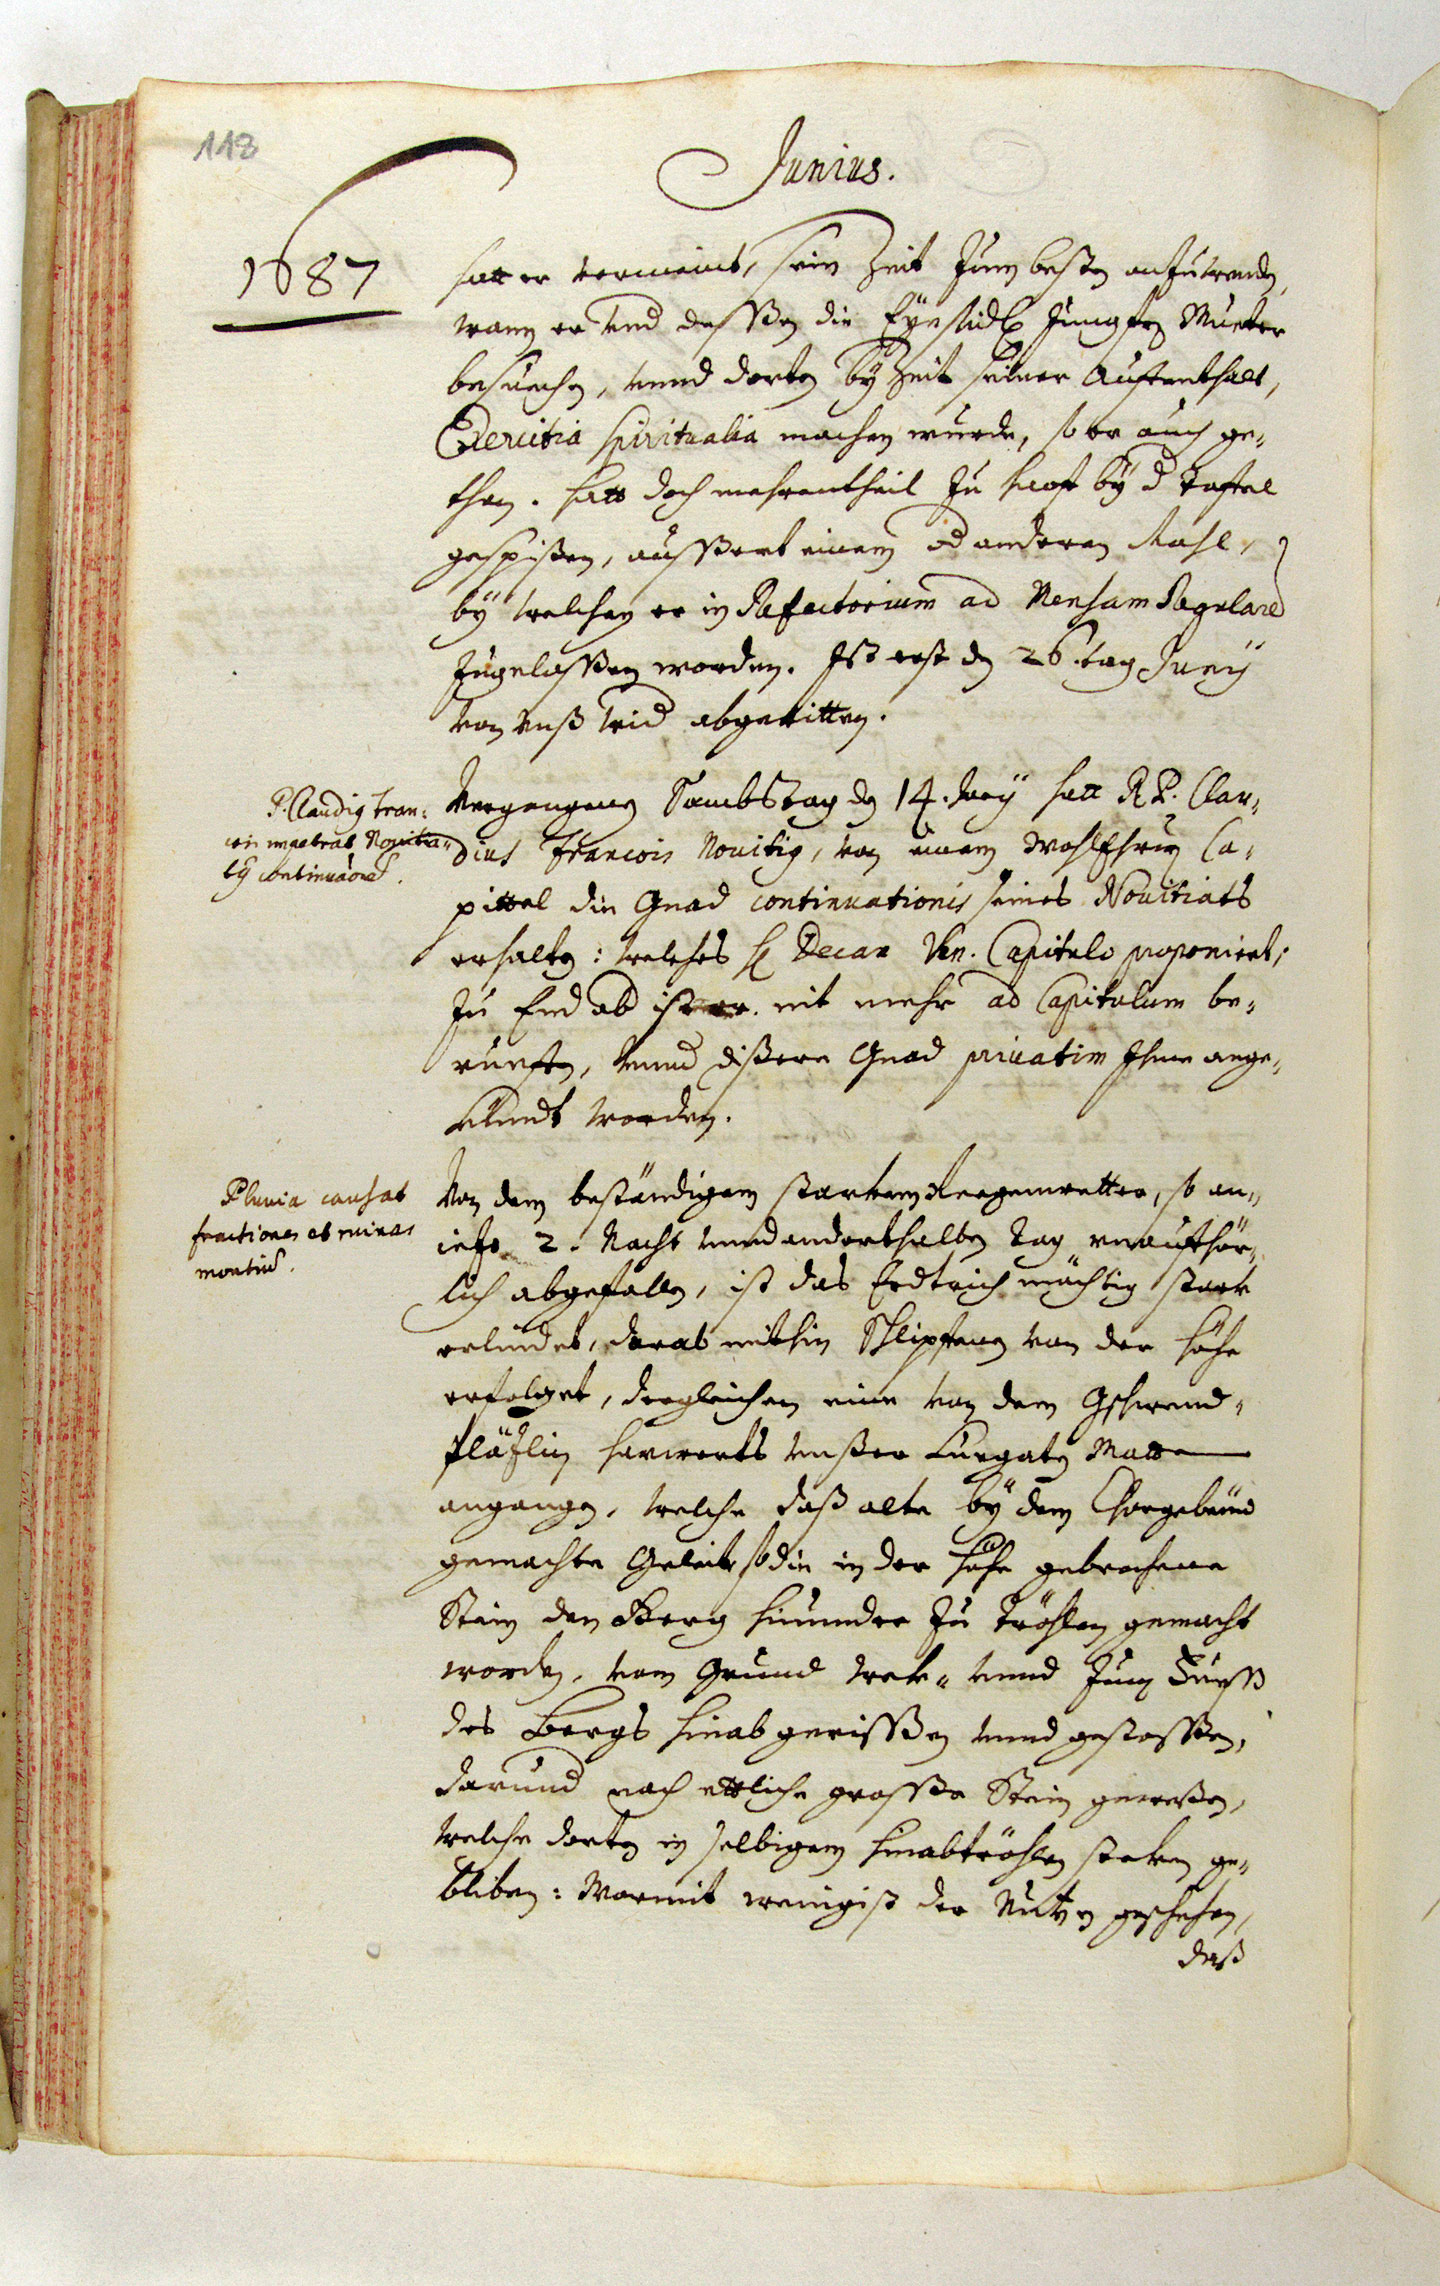 118
Junius.
1687
hatt er vermeint, sein Zeit zum besten anzuwenden,
wann er und dessen die Eynsidl. Jungfr. Muoter
besuechen, unnd dorten by Zeit seiner Auffenthalt,
Exercitia spiritualia machen wurde, so er auch ge-
than. hatt doch mehrentheil zu hoof by d Taffel
gespisen, aussert einem od anderen Mahl,
by welchen er in Refectorium ad Mensam Regularē
zugelassen worden. Ist erst den 26. tag Junij
von unß wid abgeritten.
P. Claudig Fran-
cois impetrat Novitia-
tg continuãonē.
Vergangnen Sambstag den 14. Junij hatt R. P. Clau-
dius Francois Novitig, von einem wohlEhrw. Ca-
pittel die Gnad continuationis seines Novitiats
erhalten: welches H. Decan Ven. Capitulo proponiert;
zu End ab ist er nit mehr ad Capitulum be-
rueffen, unnd dissere Gnad privatim Ihme ange-
kündt worden.
Pluvia causat
fractiones et ruinas
montiū.
Von dem beständigem starkem Reegenwetter, so an-
iezo 2. Nacht unnd anderthalben Tag unauffhör-
lich abgefallen, ist das Erdtrich mächtig stark
erlindet, darab mithin Schlipffen von der Höhe
erfolget, dergleichen eine von dem Gschwend-
pläzlin harwerts unsser Kurgaten Matte
angangen, welche daß alte by dem Chorgebäuw
gemachte Geleit, so die in der Höhe gebrochene
Stein den Berg hinunder zu tröhlen gemacht
worden, vom Grund wek- unnd zum Fuess
des Bergs hinab gerissen unnd gestossen,
darund noch ettliche grosse Stein gewessen,
welche dorten in selbigem hinabtröhlen steken ge-
bliben: Warmit wenigist der Nutzen geschehen,
daß